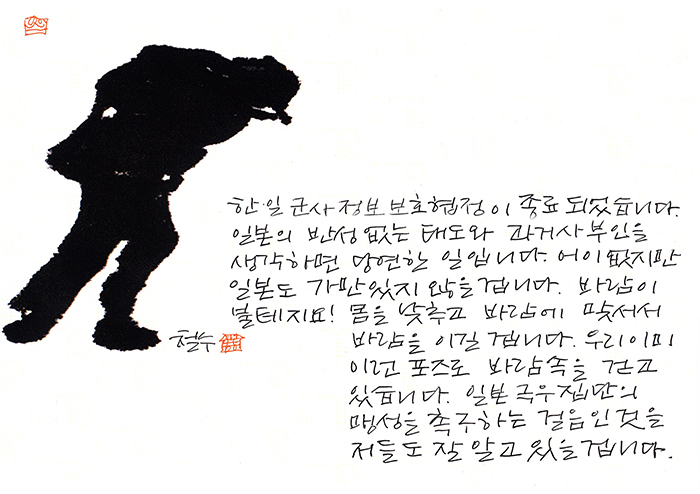 한·일 군사정보보호협정이 종료되었습니다.
일본의 반성없는 태도와 과거사부인을
생각하면 당연한 일입니다. 어이없지만
일본도 가만있지 않을겁니다. 바람이
불테지요! 몸을 낮추고 바람에 맞서서
바람을 이길겁니다. 우리 이미
이런 포즈로 바람속을 걷고
있습니다. 일본 극우집단의
맹성을 촉구하는 걸음인 것을
저들도 잘 알고 있을겁니다.
철수